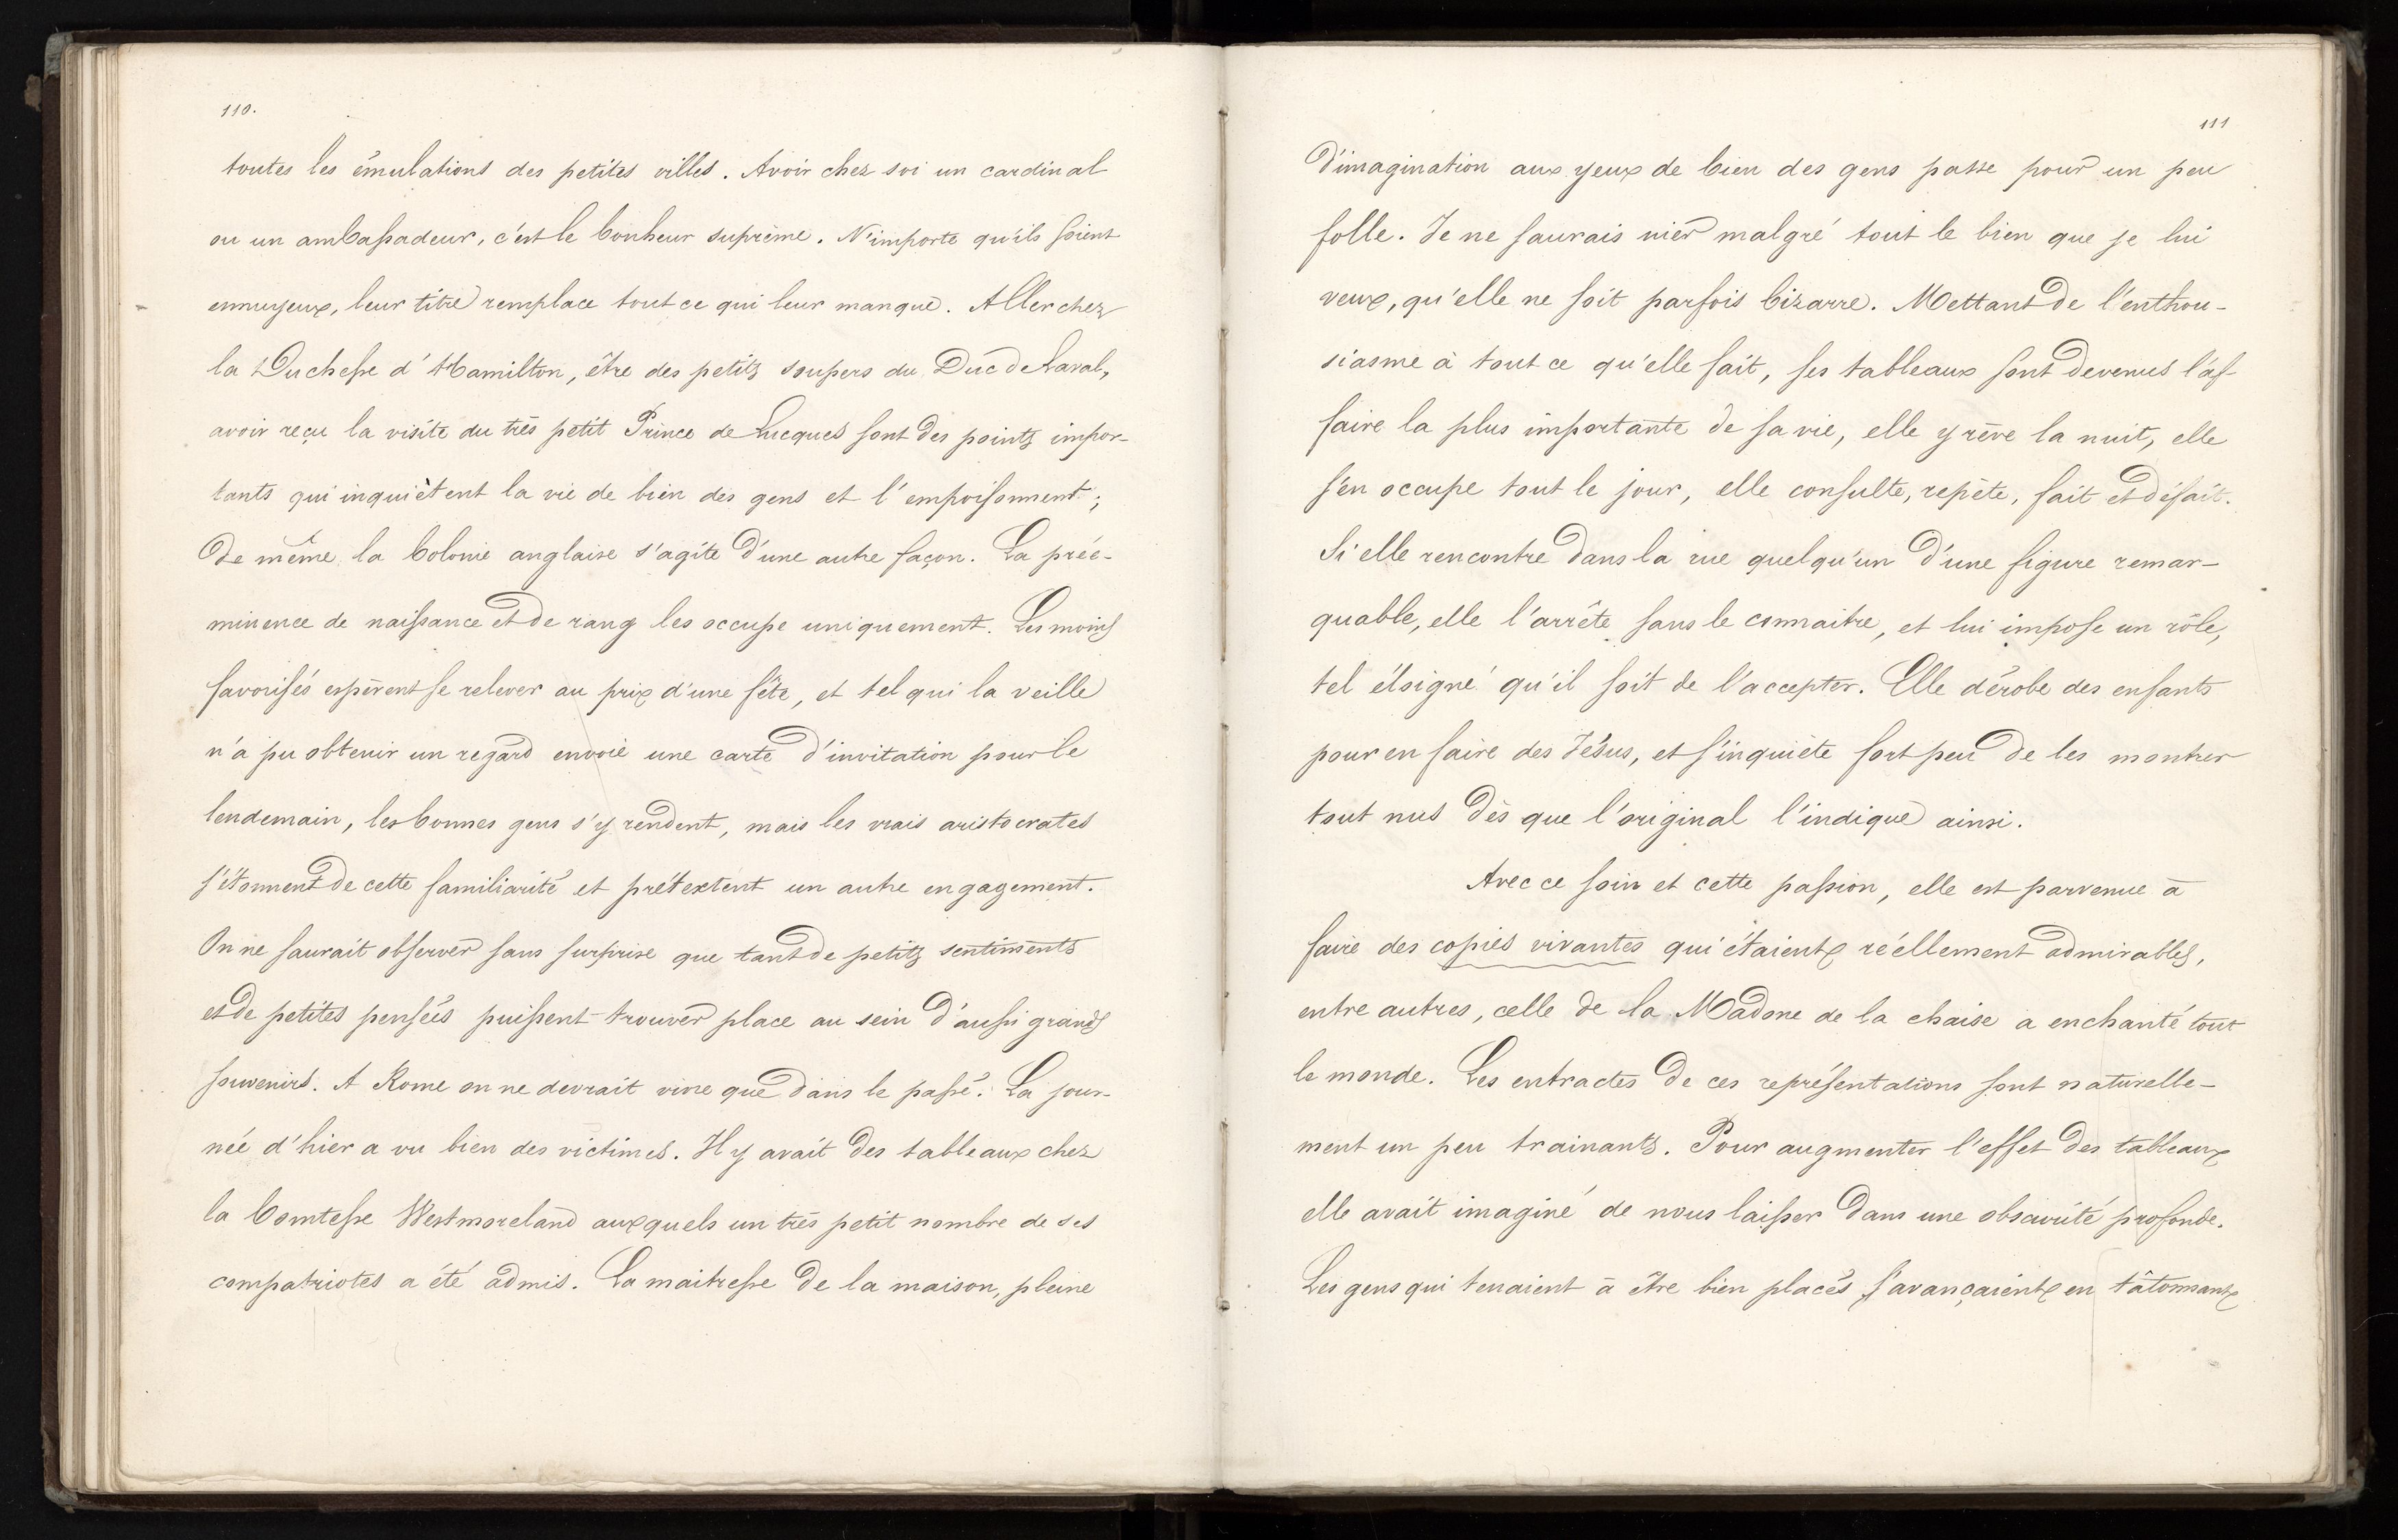 110.
toutes les émulations des petites villes. Avoir chez soi un cardinal
ou un ambassadeur, c'est le bonheur suprème. N'importe qu'ils soient
ennuyeux, leur titre remplace tout ce qui leur manque. Aller chez
la Duchesse d'Hamilton, être des petits soupers du Duc de Laval,
avoir reçu la visite du très petit Prince de Lucques sont des points impor-
tants qui inquiètent la vie de bien des gens et l'empoisonnent;
De même la Colonie anglaise s'agite d'une autre façon. La prée-
minence de naissance et de rang les occupe uniquement. Les moins
favorisés espèrent se relever au prix d'une fête, et tel qui la veille
n'a pu obtenir un regard envoie une carte d'invitation pour le
lendemain, les bonnes gens s'y rendent, mais les vrais aristocrates
s'étonnent de cette familiarité et prétextent un autre engagement.
On ne saurait observer sans surprise que tant de petits sentiments
et de petites pensées puissent trouver place au sein d'aussi grands
souvenirs. A Rome on ne devrait vivre que dans le passé. La jour-
née d'hier a vu bien des victimes. Il y avait des tableaux chez
la Comtesse Westmoreland auxquels un très petit nombre de ses
compatriotes a été admis. La maitresse de la maison, pleine
111
d'imagination aux yeux de bien des gens passe pour un peu
folle. Je ne saurais nier malgré tout le bien que je lui
veux, qu'elle ne soit parfois bizarre. Mettant de l'enthou-
siasme à tout ce qu'elle fait, ses tableaux sont devenus l'af-
faire la plus importante de sa vie, elle y rêve la nuit, elle
s'en occupe tout le jour, elle consulte, repète, fait et défait.
Si elle rencontre dans la rue quelqu'un d'une figure remar-
quable, elle l'arrête sans le connaitre, et lui impose un rôle,
tel éloigné qu'il soit de l'accepter. Elle dérobe des enfants
pour en faire des Jésus, et s'inquiète fort peu de les montrer
tout nus dès que l'original l'indique ainsi.
Avec ce soin et cette passion, elle est parvenue à
faire des copies vivantes qui étaient réellement admirables,
entre autres, celle de la Madone de la chaise a enchanté tout
le monde. Les entractes de ces représentations sont naturelle-
ment un peu trainants. Pour augmenter l'effet des tableaux
elle avait imaginé de nous laisser dans une obscurité profonde.
Les gens qui tenaient à être bien placés s'avançaient en tâtonnant